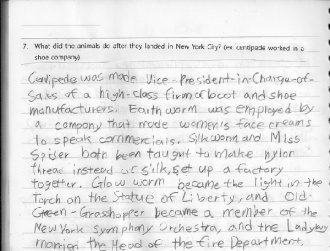 7. What did the animals do after they landed in New York City? (ex. centipede worked in a
shoe company)
Centipede was made Vice-President-in-Charge-of-
Sales of a high-class firm of boot and shoe
manufacturers. Earth worm was employed by
a company that made women's face creams
to speak commercials. Silkworm and Miss
Spider both been taught to make nylon
thread instead of silk, set up a factory
together. Glow worm became the light in the
Torch on the Statue of Liberty, and Old-
Green-Grasshopper became a member of the
New York Symphony Orchestra, and the Ladybug
married the Head of the Fire Department.